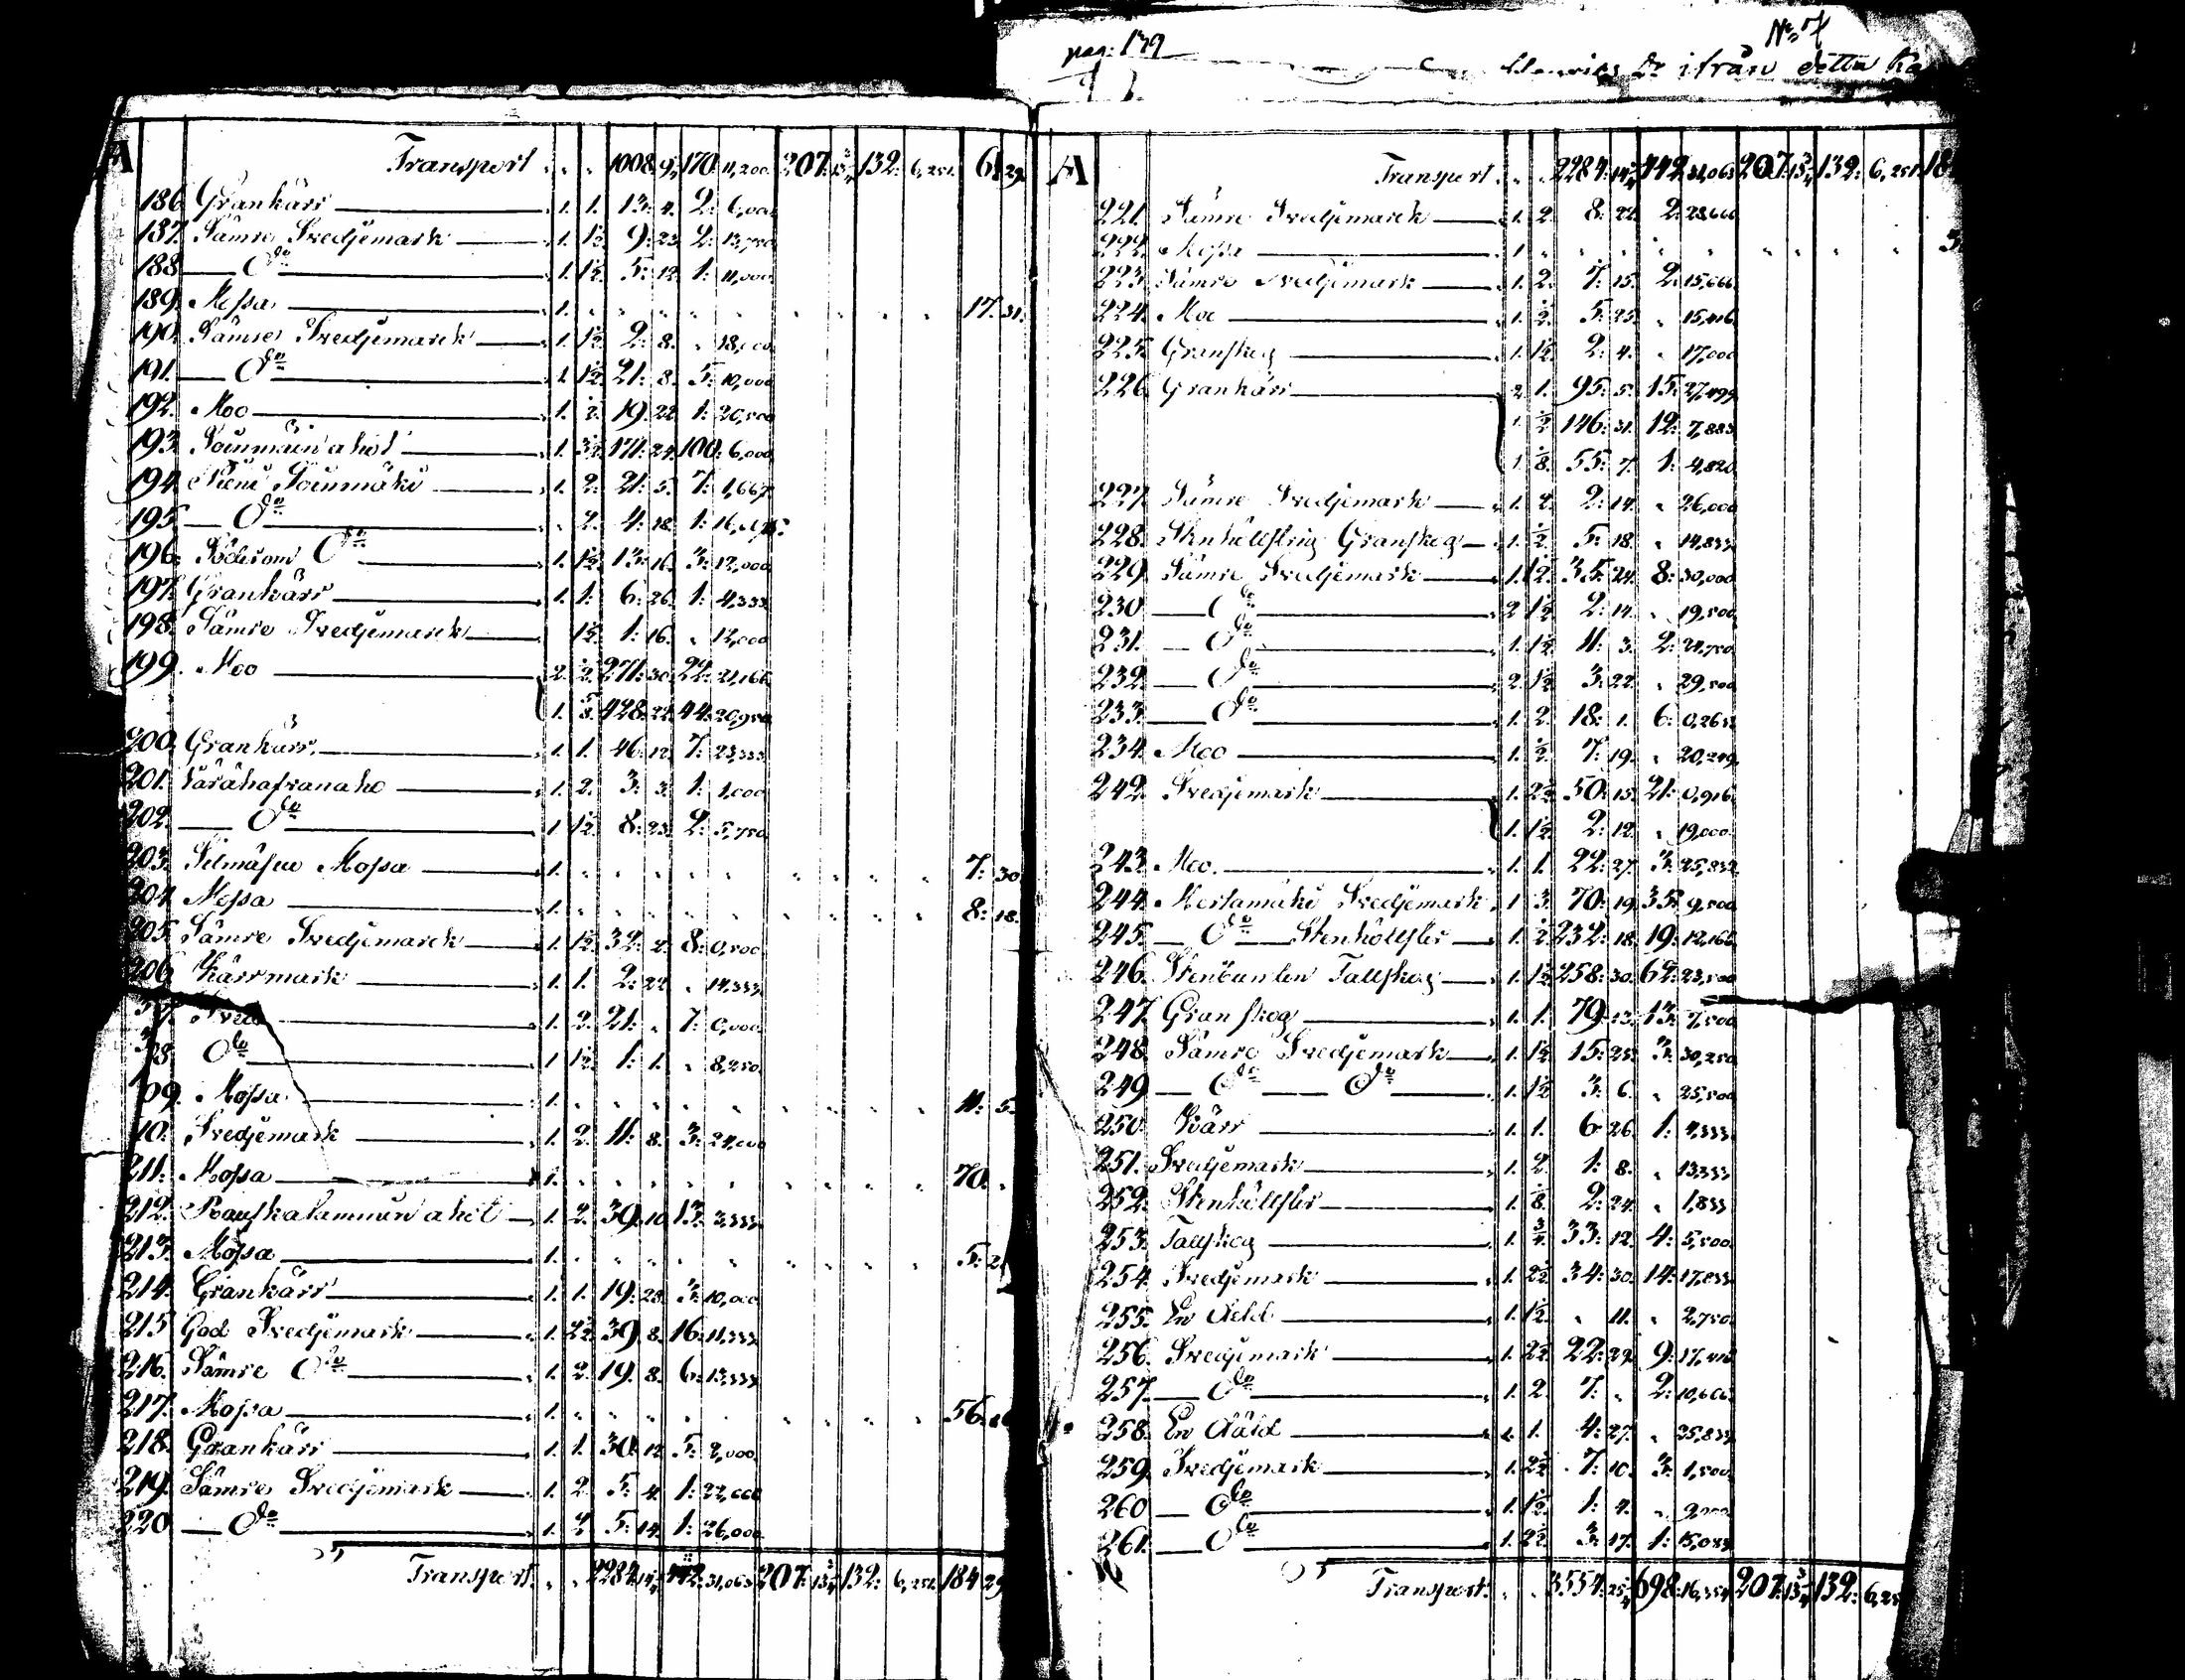 pag: 139
No 7
ifrån detta
A Transport 1008. 9 170. 11,200 207. 13 3/4 132. 6,251 61 29
186 Grankärr 1. 1. 13. 4. 2. 6,000
187. Sämre Svedjemark 1. 1½ 9. 23. 2. 13,750
188 Do 1. 1½ 5. 12. 1. 11,000
189. Mossa 1. 17. 31.
190. Sämre Svedjemarck 1. 1½ 2. 8. 18,000
191. Do 1. 1½ 21. 8. 5. 10,000
192. Moo 1. ½ 19. 22. 1. 20,500
193. Soinmäin ahot 1. 3½ 171. 24. 100. 6,000
194. Pieni Soinmäki 1. 2. 21. 5. 7. 1,667
195. Do 2. 4. 18. 1.
196. Do 1. 1½ 13. 16. 3. 12,000
197. Grankärr 1. 1. 6. 26. 1. 4,333
198. Sämre Svedjemarck 1½ 1. 16. 12,000
199. Moo 2. ½ 271. 30. 22. 21,166
1. 428. 22. 44. 20,950
200. Grankärr 1. 1. 46. 12. 7. 23,333
201. 1. 2. 3. 3. 1. 1,000
202. Do 1. 1½ 8. 23. 2. 5,750
203. Mossa 1. 7. 30
204. Mossa 1. 8. 18.
205. Sämre Svedjemarck 1. 1½ 32. 2. 8. 0,500
206. Kärrmark 1. 1. 2. 22. 14,333
1. 2. 21. 7. 0,000
8. Do 1. 1½ 1. 1. 8,250
09. Mossa 1. 11. 5.
10. Svedjemark 1. 2. 11. 8. 3. 24,000
211. Mossa 1. 70.
212. Rauskalammin ahot 1. 2. 39. 10. 13. 3,333
213. Mossa 1. 5. 2
214. Grankärr 1. 1. 19. 28. 3. 10,000
215 God Svedjemark 1. 2½ 39. 8. 16. 11,333
216. Sämre Do 1. 2. 19. 8. 6. 13,333
217. Mossa 1. 56.
218. Grankärr 1. 1. 30. 12. 5. 2,000
219. Sämre Svedjemark 1. 2. 5. 4. 1. 22,666
220 Do 1. 2. 5. 14. 1. 26,000
Transport 2284. 14 442. 31,063 207. 13 3/4 132. 6,251 184 29
A Transport 2284. 14 442. 31,063 207. 13 3/4 132. 6,251 18
221. Sämre Svedjemarck 1. 2. 8. 22. 2. 28,666
222. Mossa 1
223. Sämre Svedjemark 1. 2. 7. 15. 2. 15,666
224. Moo 1. ½ 5. 25. 15,416
225. Granskog 1. 1½ 2. 4. 17,000
226 Grankärr 2. 1. 95. 5. 15. 27,499
1. ½ 146. 31. 12. 7,883
1. 55. 7. 1. 4,820
227. Sämre Svedjemark 1. 2. 2. 14. 26,000
228. Granskog 1. ½ 5. 18. 14,833
229 Sämre Svedjemark 1. 1½ 35. 24. 8. 30,000
230 Do 2 1½ 2. 14. 19,500
231. Do 1. 1½ 11. 3. 2. 24,750
232. Do 2. 1½ 3. 22. 29,500
233. Do 1. 2. 18. 1. 6.
234. Moo 1. ½ 7. 19. 20,249
242. Svedjemark 1. 2½ 50. 15. 21. 0,916
1. 1½ 2. 12. 19,000
243. Moo. 1. 1. 22. 27. 3. 25,832
244. Mertamäki Svedjemark 1 3. 70. 19. 35. 9,500
245. Do Stenkölster 1. ½ 232. 18. 19. 12,166
246. Stenbunden Tallskog 1. 1½ 258. 30. 62. 23,500
247. Granskog 1. 1. 79. 13. 13. 7,500
248. Sämre Svedjemark 1. 1½ 15. 25. 3. 30,250
249 Do Do 1. 1½ 3. 6. 25,500
250. Kärr 1. 1. 6 26. 1. 4,333
251. Svedjemark 1. 2. 1. 8. 13,333
252. Stenkölster 1. 2. 24. 1,833
253. Tallskog 1. ¾ 33. 12. 4. 5,500
254. Svedjemark 1. 2½ 34. 30. 14. 17,833
255. En 1. 1½ 11. 2,750
256. Svedjemark 1. 2½ 22. 29. 9.
257. Do 1. 2. 7. 2. 10,666
258. En 1. 4. 27. 25,833
259. Svedjemark 1. 2½ 7. 10. 3. 1,500
260 Do 1. 1½ 1. 4.
261. Do 1. 2½ 3. 17. 1. 15,083
Transport 3554. 698. 16,354 207. 13 3/4 132. 6,25